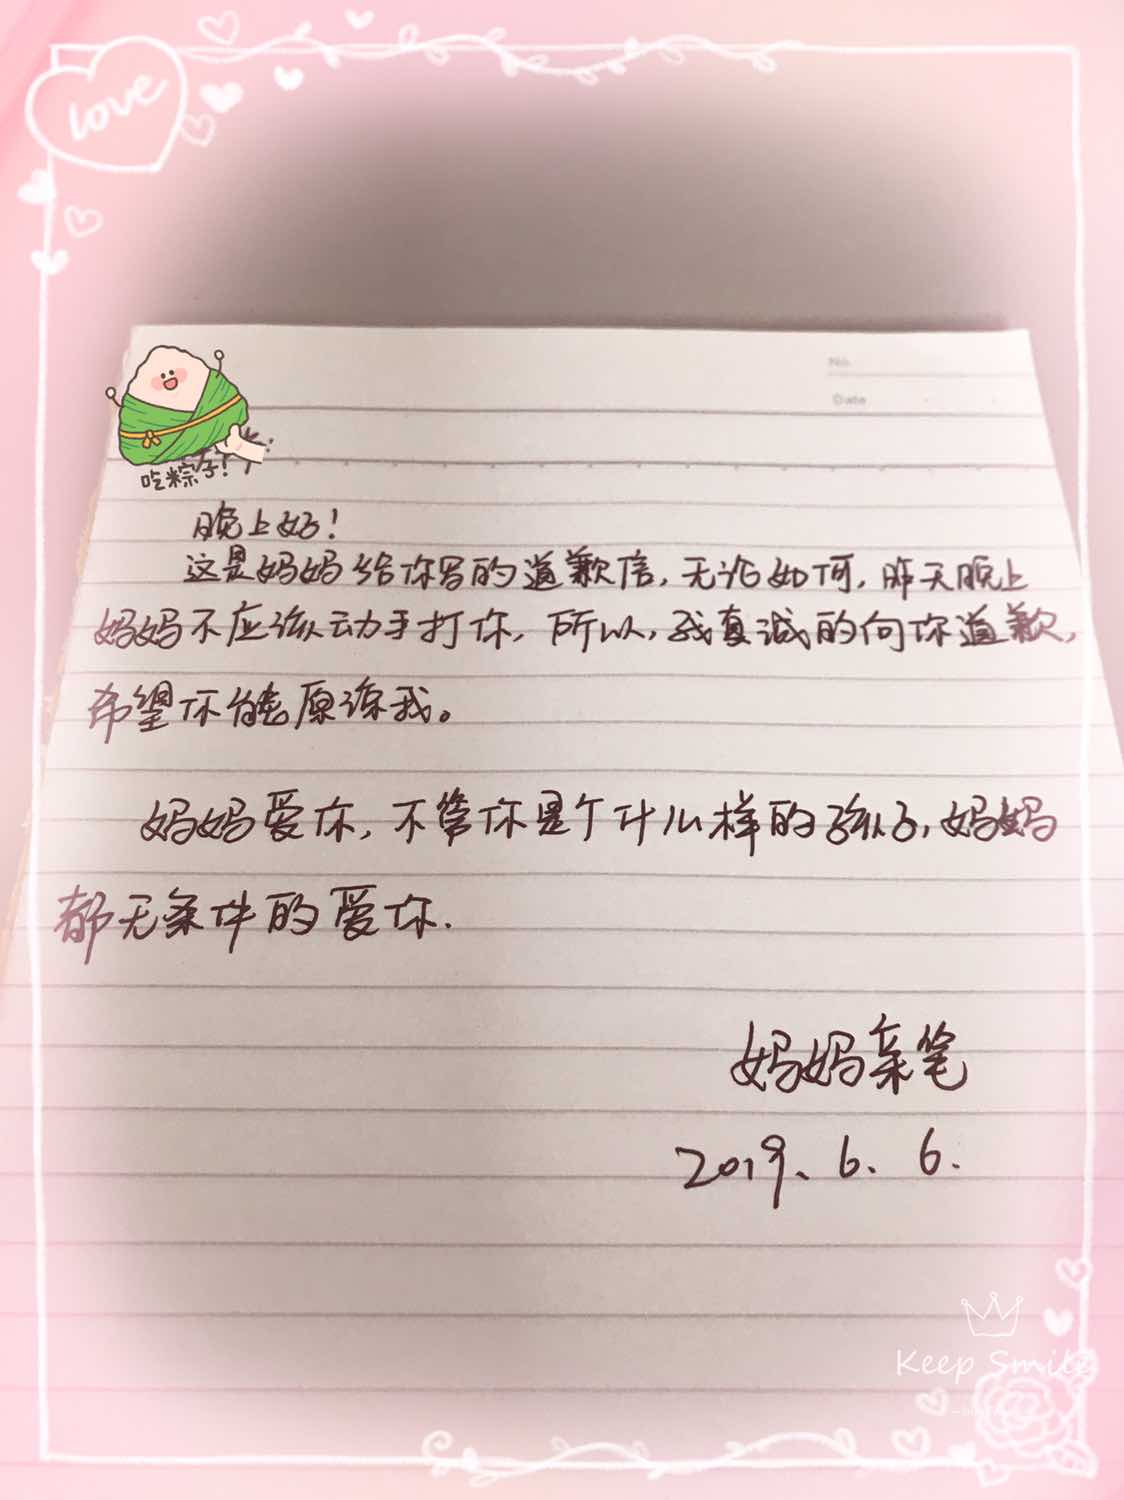 love
No.
Date
吃粽子!
晚上好!
这是妈妈给你写的道歉信,无论如何,昨天晚上
妈妈不应该动手打你,所以,我真诚的向你道歉,
希望你能原谅我。
妈妈爱你,不管你是个什么样的孩子,妈妈
都无条件的爱你.
妈妈亲笔
2019.6.6.
Keep Smile